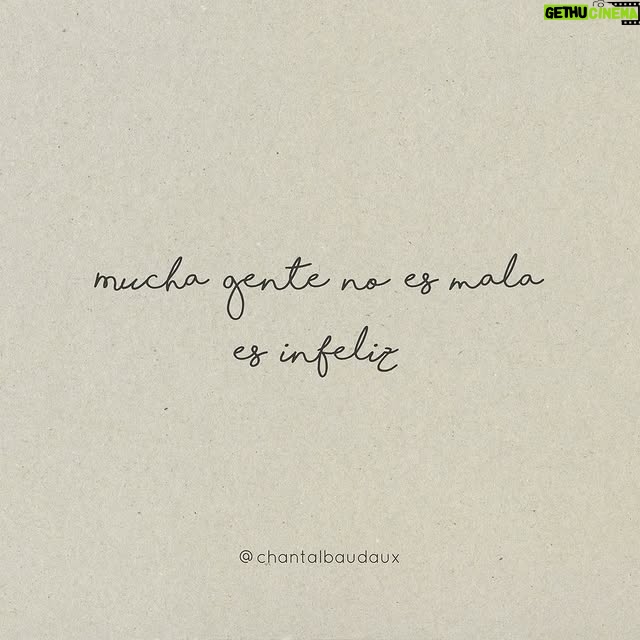 GETHUCINEMA
mucha gente no es mala
es infeliz
@chantalbaudaux